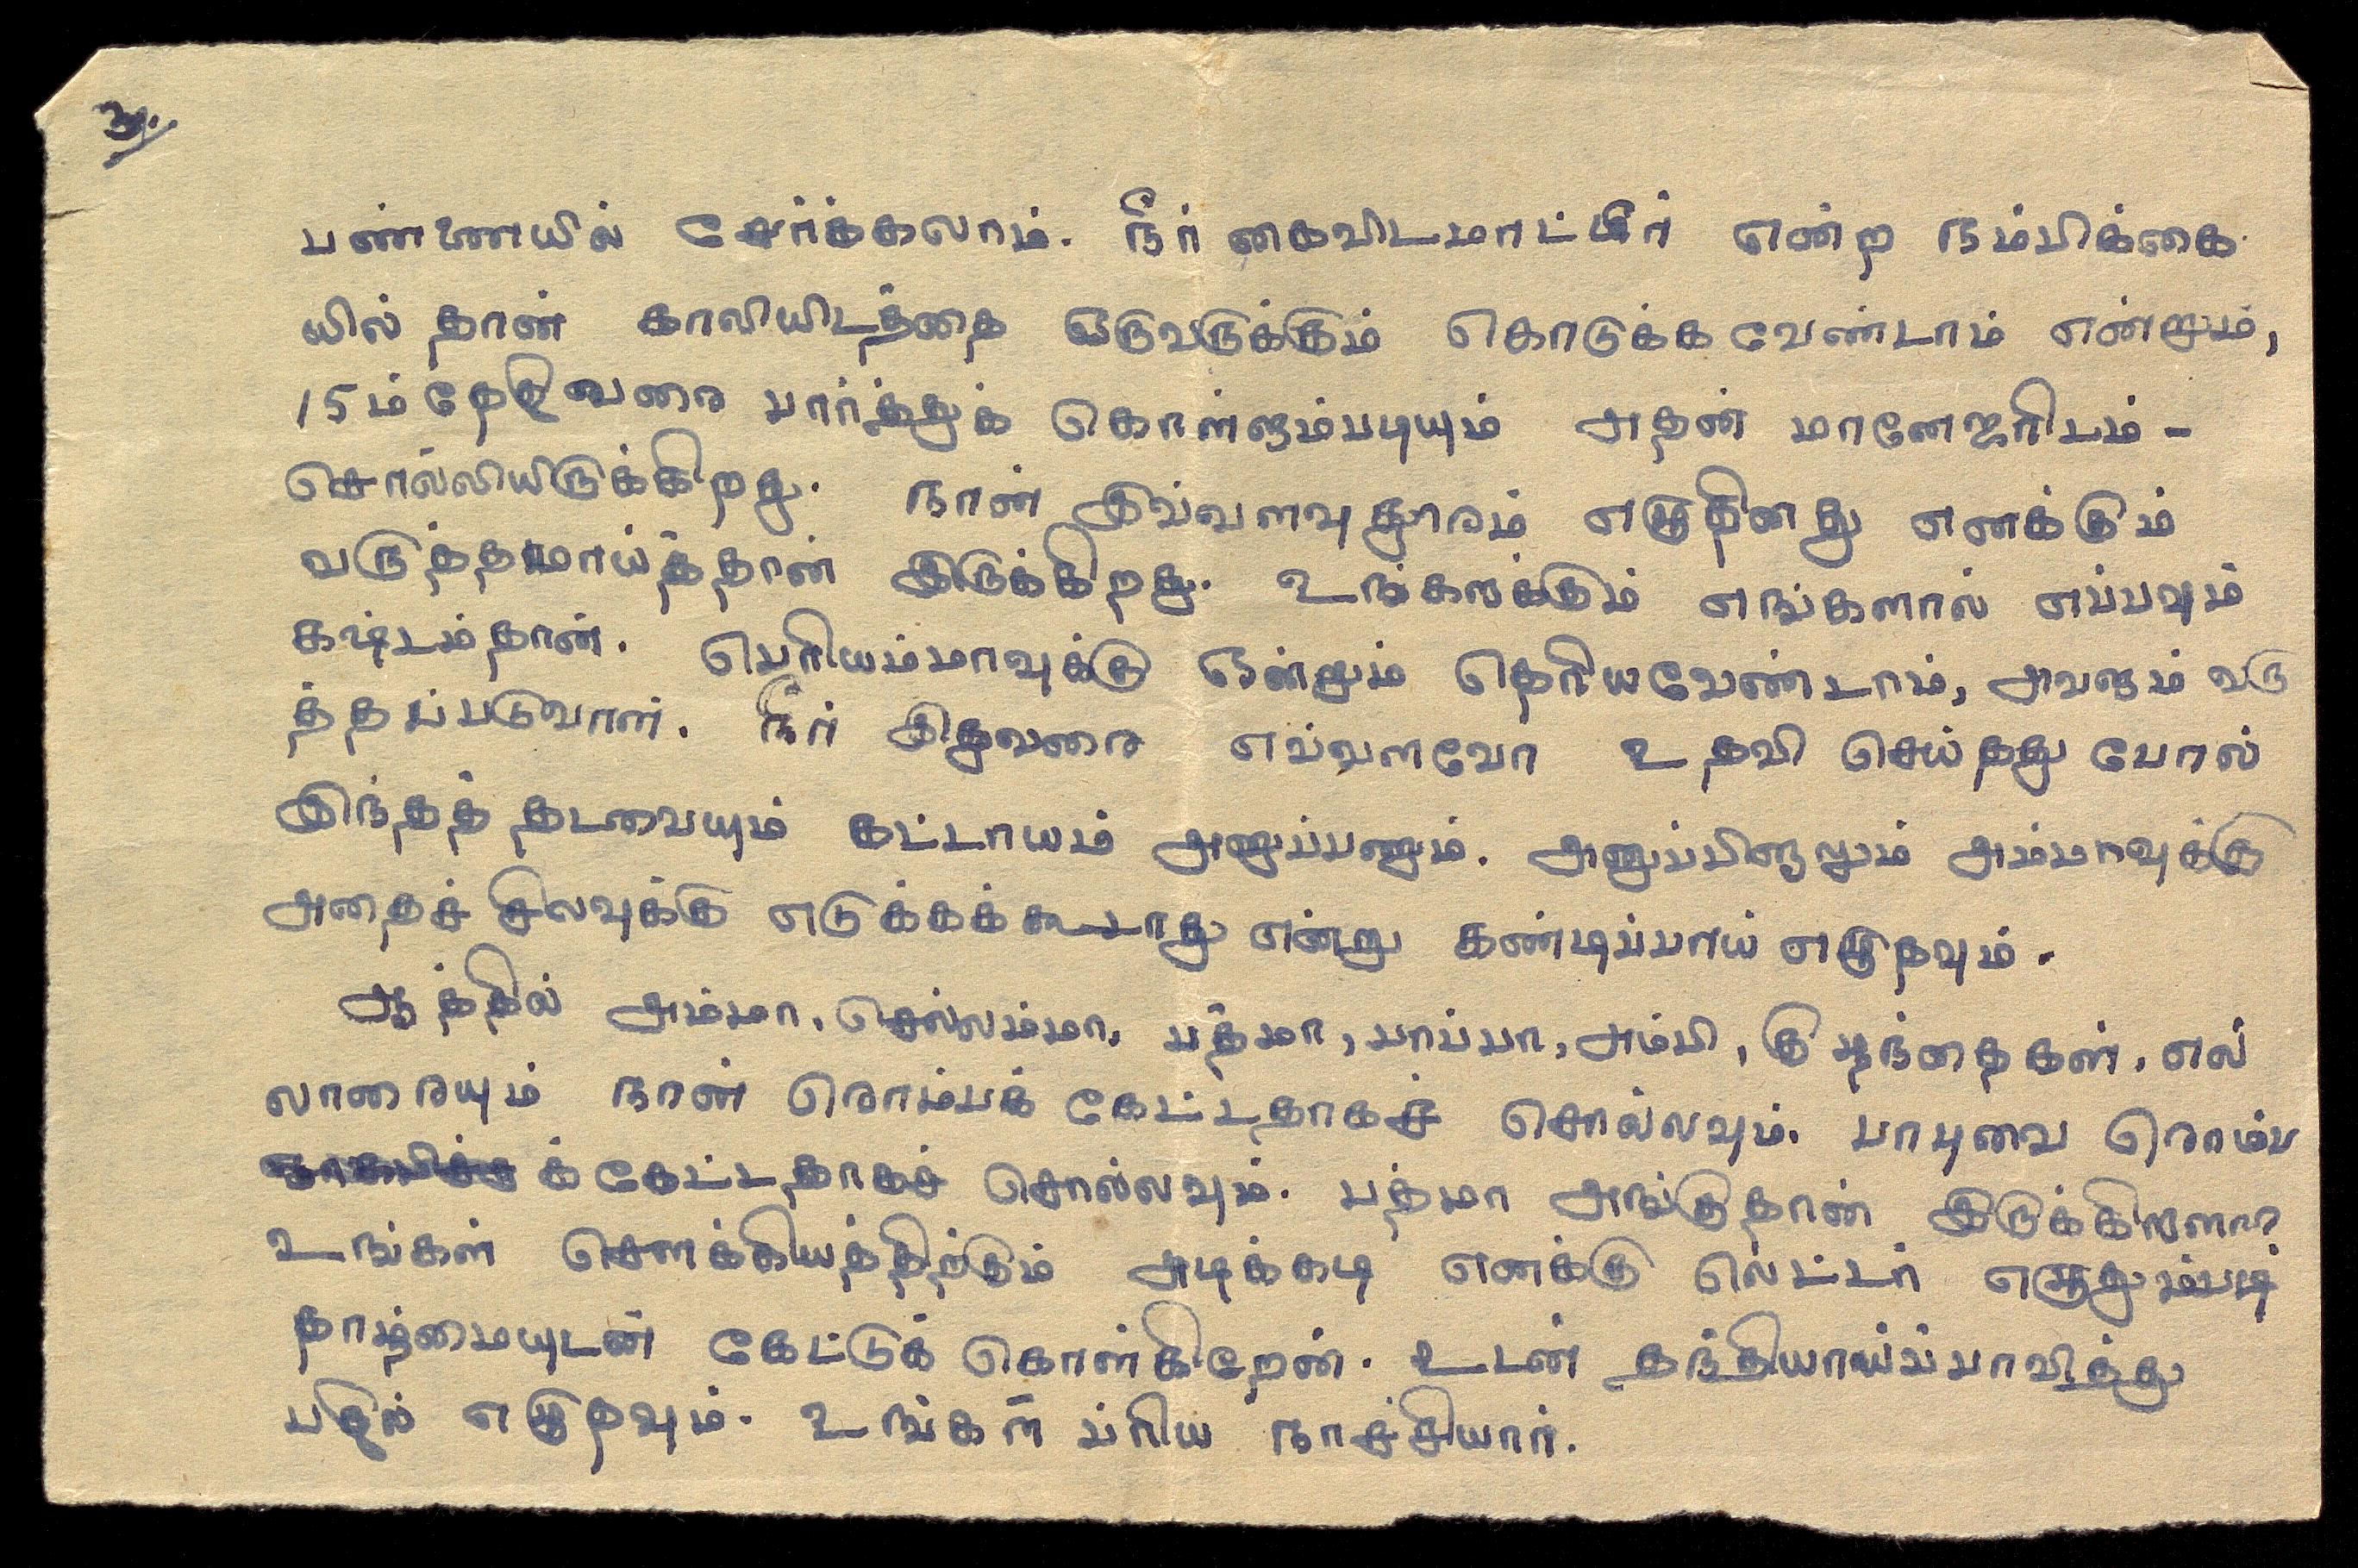 ௩.
பண்ணையில் சேர்க்கலாம். நீர் கைவிடமாட்டீர் என்ற நம்பிக்கை
யில் தான் காலியிடத்தை ஒருவருக்கும் கொடுக்க வேண்டாம் என்றும்,
15ம் தேதிவரை பார்த்துக் கொள்ளும்படியும் அதன் மானேஜரிடம் -
சொல்லியிருக்கிறது. நான் இவ்வளவு தூரம் எழுதினது எனக்கும்
வருத்தமாய்த்தான் இருக்கிறது. உங்களுக்கும் எங்களால் எப்பவும்
கஷ்டம்தான். பெரியம்மாவுக்கு ஒன்றும் தெரியவேண்டாம், அவளும் வரு
த்தப்படுவாள். நீர் இதுவரை எவ்வளவோ உதவி செய்தது போல்
இந்தத் தடவையும் கட்டாயம் அனுப்பணும். அனுப்பினாலும் அம்மாவுக்கு
அதைச் சிலவுக்கு எடுக்கக்கூடாது என்று கண்டிப்பாய் எழுதவும்.
ஆத்தில் அம்மா, செல்லம்மா, பத்மா, பாப்பா, அம்பி, குழந்தைகள், எல்
லாரையும் நான் ரொம்பக் கேட்டதாகச் சொல்லவும். பாபுவை ரொம்ப
க் கேட்டதாகச் சொல்லவும். பத்மா அங்குதான் இருக்கிறாளா?
உங்கள் சௌக்கியத்திற்கும் அடிக்கடி எனக்கு லெட்டர் எழுதும்படி
தாழ்மையுடன் கேட்டுக் கொள்கிறேன். உடன் தந்தியாய்ப்பாவித்து
பதில் எழுதவும். உங்கள் ப்ரிய நாச்சியார்.